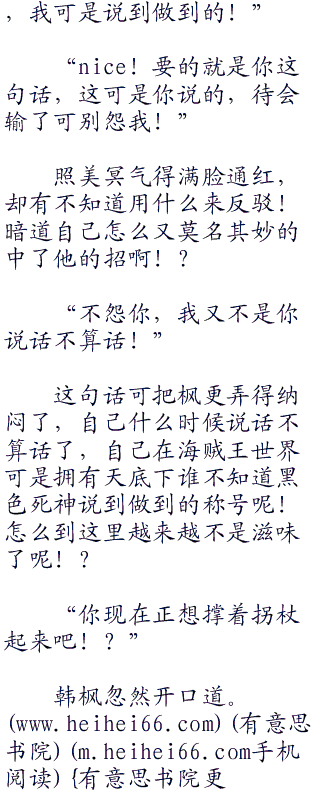 ，我可是说到做到的！”
“nice！要的就是你这
句话，这可是你说的，待会
输了可别怨我！”
照美冥气得满脸通红，
却有不知道用什么来反驳！
暗道自己怎么又莫名其妙的
中了他的招啊！？
“不怨你，我又不是你
说话不算话！”
这句话可把枫更弄得纳
闷了，自己什么时候说话不
算话了，自己在海贼王世界
可是拥有天底下谁不知道黑
色死神说到做到的称号呢！
怎么到这里越来越不是滋味
了呢！？
“你现在正想撑着拐杖
起来吧！？”
韩枫忽然开口道。
(www.heihei66.com)(有意思
书院)(m.heihei66.com手机
阅读){有意思书院更